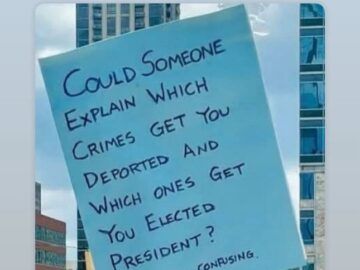 COULD SOMEONE
EXPLAIN WHICH
CRIMES GET YOU
DEPORTED AND
WHICH ONES GET
YOU ELECTED
PRESIDENT?
CONFUSING.